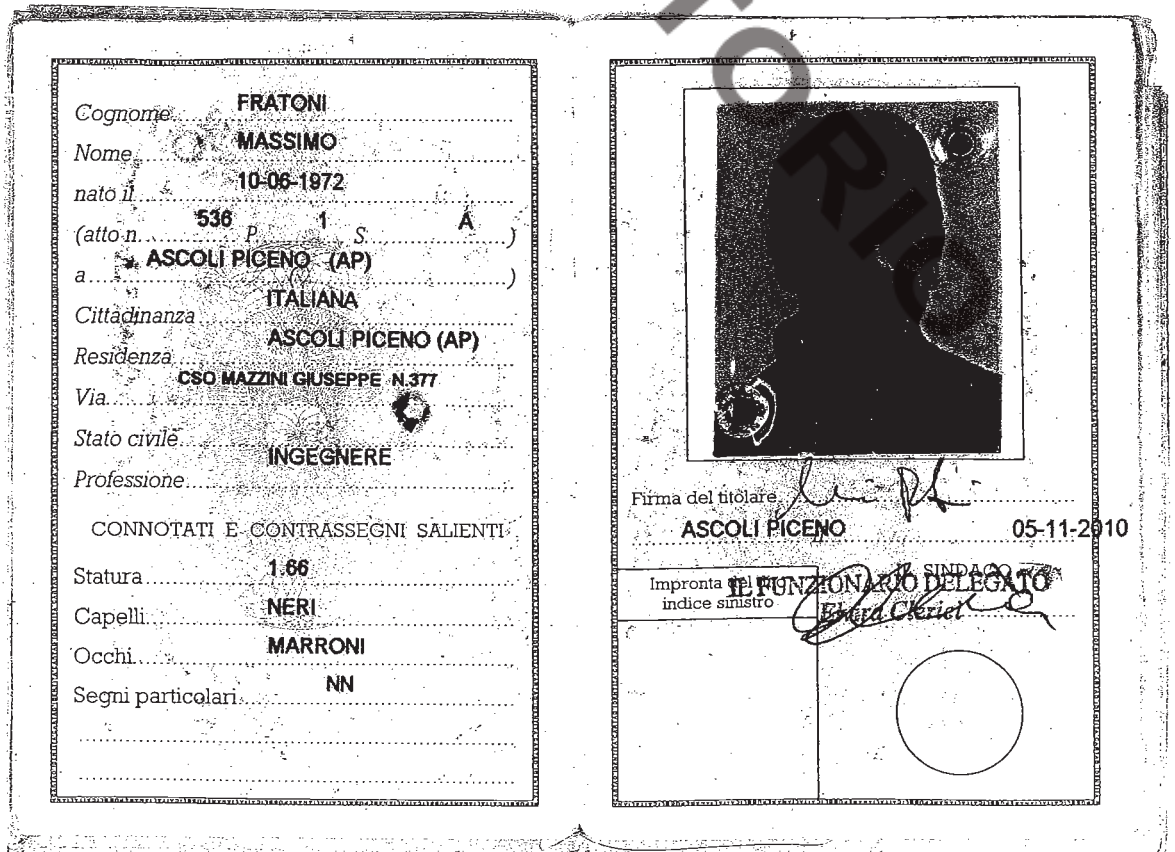 Cognome FRATONI
Nome MASSIMO
nato il 10-06-1972
(atto n. 536 P. 1 S. A )
a ASCOLI PICENO (AP) ( )
Cittadinanza ITALIANA
Residenza ASCOLI PICENO (AP)
Via CSO MAZZINI GIUSEPPE N.377
Stato civile
Professione INGEGNERE
CONNOTATI E CONTRASSEGNI SALIENTI
Statura 1.66
Capelli NERI
Occhi MARRONI
Segni particolari NN
TORIO
Firma del titolare
ASCOLI PICENO 05-11-2010
Impronta del dito
indice sinistro
IL SINDACO
IL FUNZIONARIO DELEGATO